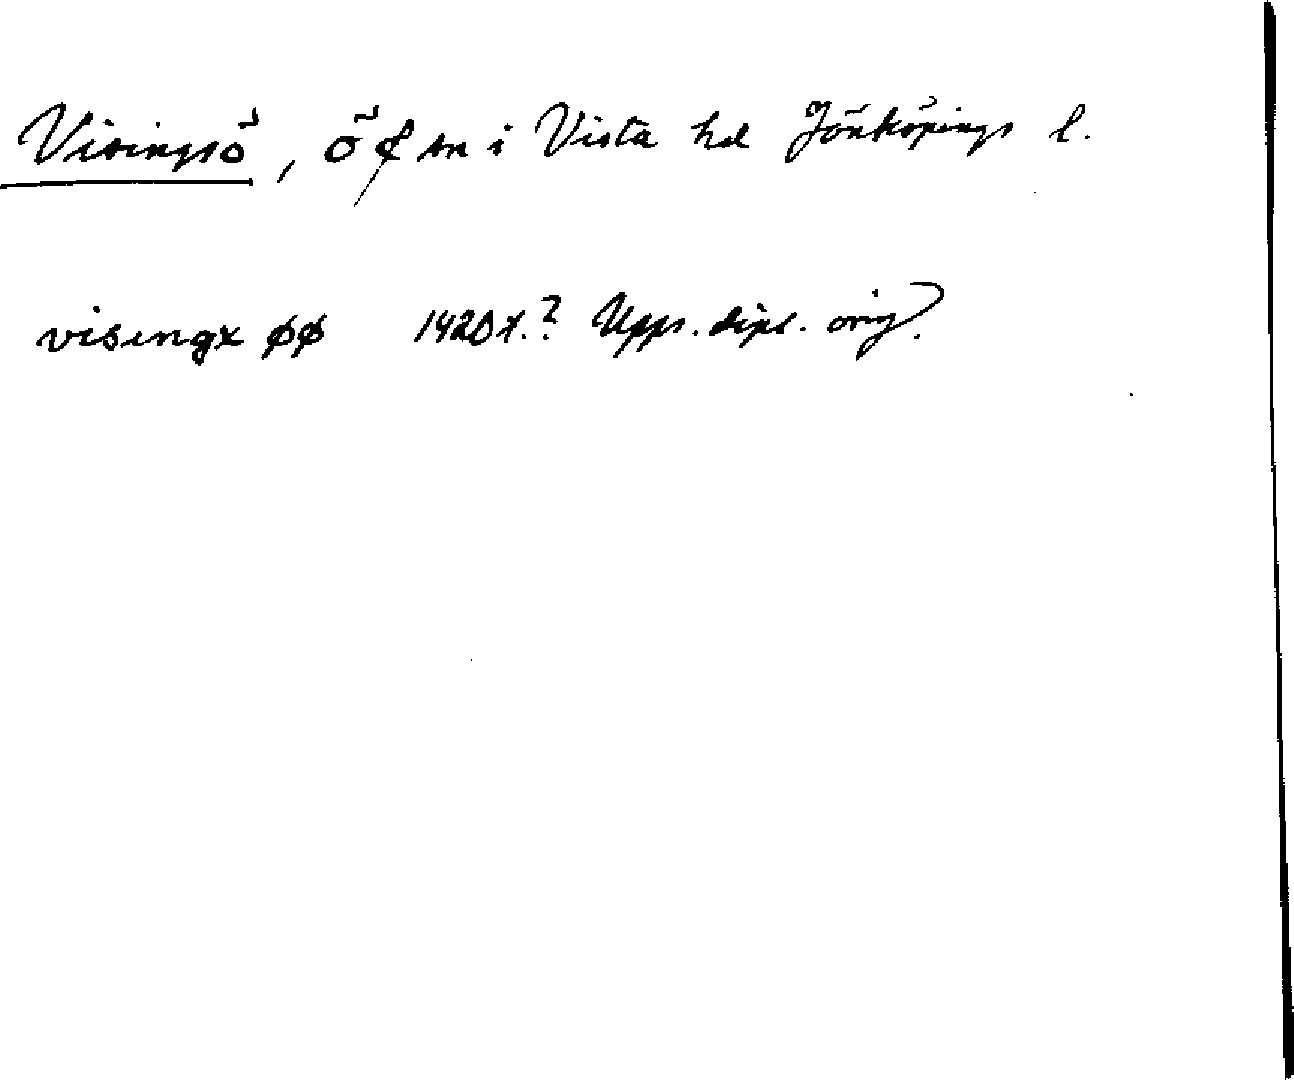 Visingsö, ö & sn i Vista hd Jönköpings l.
visingx øø 1420 t.? Upps. dipl. orig.